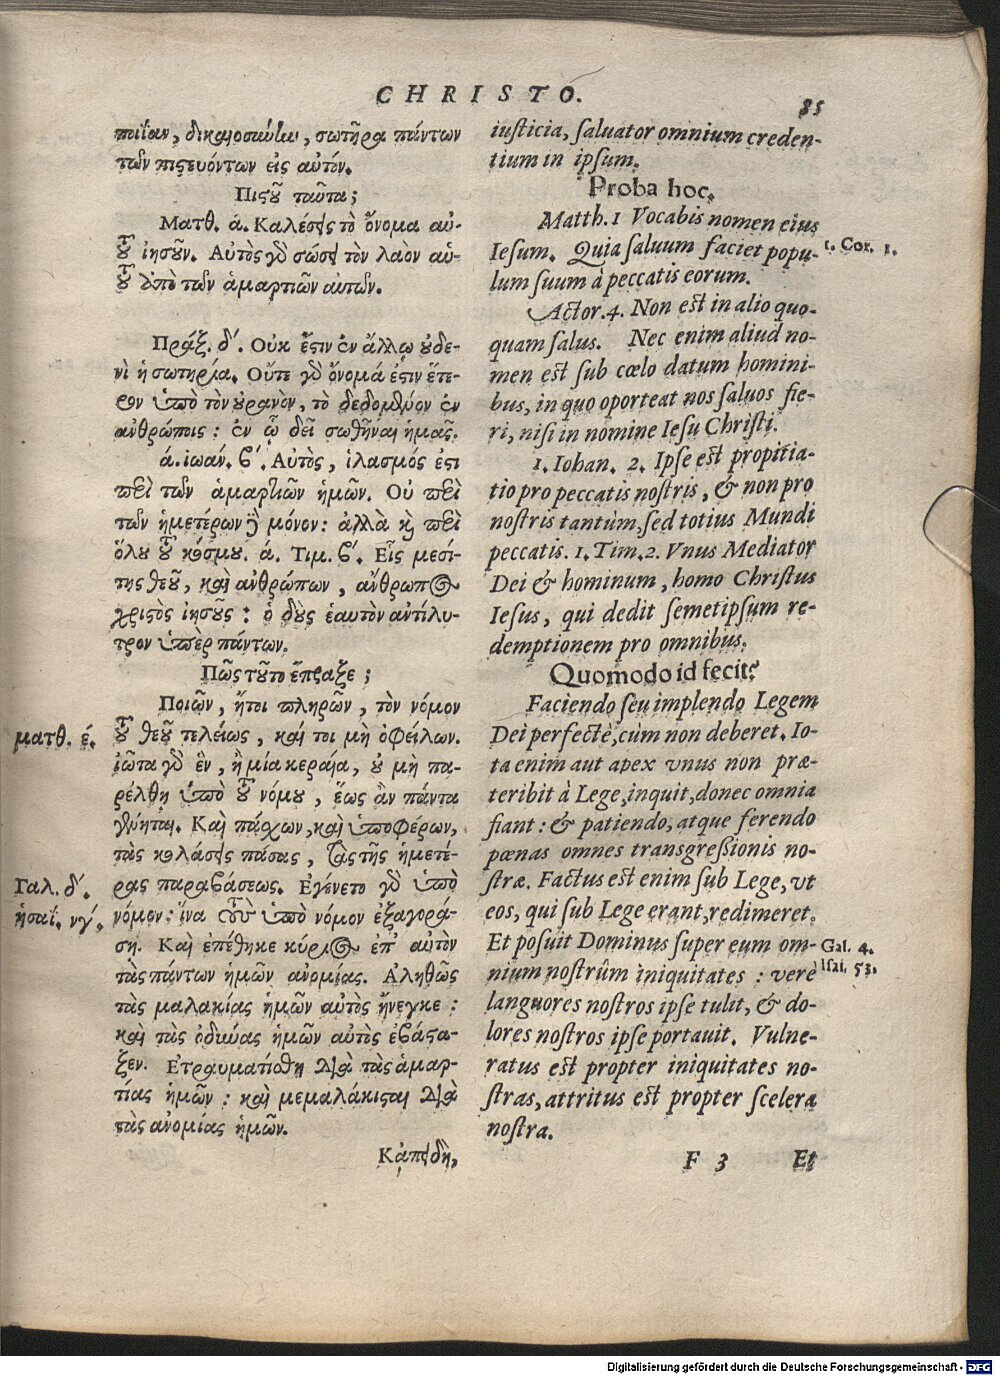 CHRISTO.
85
ποιΐαν, δικαιοσωύην, σωτῆρα πάντων
τῶν πιστευόντων εἰς αὐτόν.
Πιστοῦ ταῦτα;
Ματθ. ά. Καλέσεις τὸ ὄνομα αὐ-
τοῦ ἰησοῦν. Αὐτὸς γὸ σώσει τὸν λαὸν αὑ-
τοῦ ἀπὸ τῶν ἁμαρτιῶν αὐτῶν.
Πράξ. δ΄. Οὐκ ἔστιν ἐν ἄλλῳ οὐδε-
νὶ ἡ σωτηρία. Οὔτε γὸ ὄνομά ἐστιν ἕτε-
ρον ὑπὸ τὸν οὐρανὸν, τὸ δεδομένον ἐν
ἀνθρώποις: ἐν ᾧ δεῖ σωθῆναι ἡμᾶς.
ά. ιωάν. β΄. Αὐτὸς, ἱλασμός ἐστι
περὶ τῶν ἁμαρτιῶν ἡμῶν. Οὐ περὶ
τῶν ἡμετέρων δὲ μόνον: ἀλλὰ καὶ περὶ
ὅλου τοῦ κόσμου. ά. Τιμ. β΄. Εἷς μεσί-
της θεοῦ, καὶ ἀνθρώπων, ἄνθρωπος
χριστὸς ἰησοῦς: ὁ δοὺς ἑαυτὸν ἀντίλυ-
τρον ὑπὲρ πάντων.
Πῶς τοῦτο ἔπραξε;
Ποιῶν, ἤτοι πληρῶν, τὸν νόμον
τοῦ θεοῦ τελείως, καί τοι μὴ ὀφείλων.
ἰῶτα γὸ ἓν, ἢ μία κεραία, οὐ μὴ πα-
ρέλθῃ ὑπὸ τοῦ νόμου, ἕως ἂν πάντα
γένηται. Καὶ πάσχων, καὶ ὑποφέρων,
τὰς κολάσεις πάσας, τὰς τῆς ἡμετέ-
ρας παραβάσεως. Εγένετο γὸ ὑπὸ
νόμον: ἵνα τοὺς ὑπὸ νόμον ἐξαγορά-
σῃ. Καὶ ἐπέθηκε κύριος ἐπ' αὐτὸν
τὰς πάντων ἡμῶν ἀνομίας. Αληθῶς
τὰς μαλακίας ἡμῶν αὐτὸς ἤνεγκε:
καὶ τὰς ὀδύνας ἡμῶν αὐτὸς ἐβάστα-
ξεν. Ετραυματίσθη διὰ τὰς ἁμαρ-
τίας ἡμῶν: καὶ μεμαλάκισται διὰ
τὰς ἀνομίας ἡμῶν.
Κἀπειδὴ,
ματθ. έ.
Γαλ. δ΄.
ἡσαΐ. νγ΄.
iusticia, saluator omnium creden-
tium in ipsum.
Proba hoc.
Matth. 1 Vocabis nomen eius
Iesum. Quia saluum faciet popu-
lum suum à peccatis eorum.
Actor. 4. Non est in alio quo-
quam salus. Nec enim aliud no-
men est sub cœlo datum homini-
bus, in quo oporteat nos saluos fie-
ri, nisi in nomine Iesu Christi.
1. Iohan. 2. Ipse est propitia-
tio pro peccatis nostris, & non pro
nostris tantùm, sed totius Mundi
peccatis. 1. Tim. 2. Vnus Mediator
Dei & hominum, homo Christus
Iesus, qui dedit semetipsum re-
demptionem pro omnibus.
Quomodo id fecit?
Faciendo seu implendo Legem
Dei perfectè, cùm non deberet. Io-
ta enim aut apex vnus non præ-
teribit à Lege, inquit, donec omnia
fiant: & patiendo, atque ferendo
pœnas omnes transgressionis no-
stræ. Factus est enim sub Lege, vt
eos, qui sub Lege erant, redimeret.
Et posuit Dominus super eum om-
nium nostrûm iniquitates: verè
languores nostros ipse tulit, & do-
lores nostros ipse portauit. Vulne-
ratus est propter iniquitates no-
stras, attritus est propter scelera
nostra.
F 3 Et
1. Cor. 1.
Gal. 4.
Isai. 53.
Digitalisierung gefördert durch die Deutsche Forschungsgemeinschaft - DFG